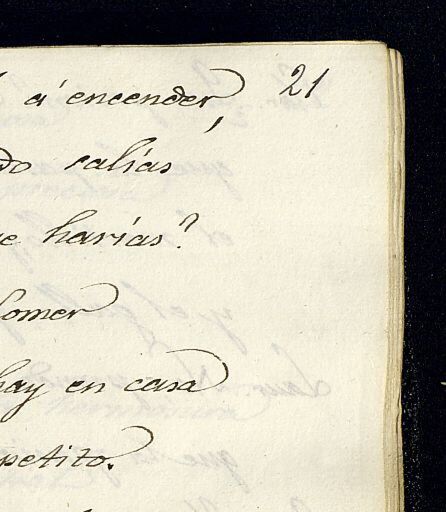 á encender, 21
salías
harías?
Comer
hay en casa
petito.